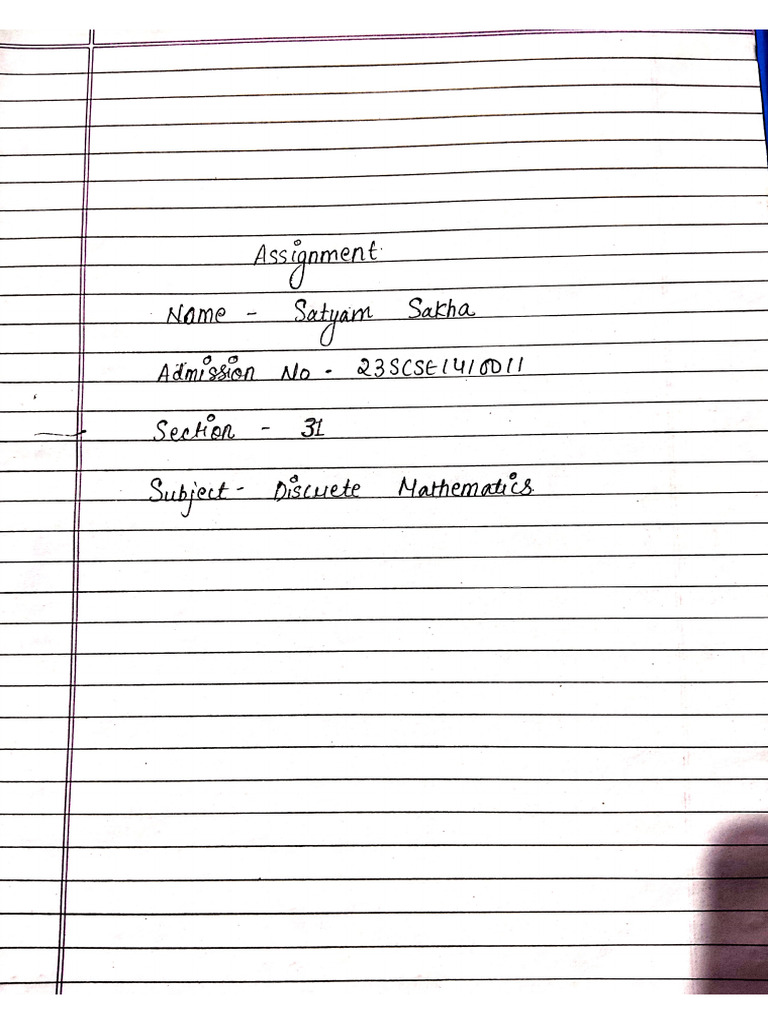 Assignment
Name - Satyam Sakha
Admission No - 23SCSE1410011
Section - 31
Subject - Discrete Mathematics